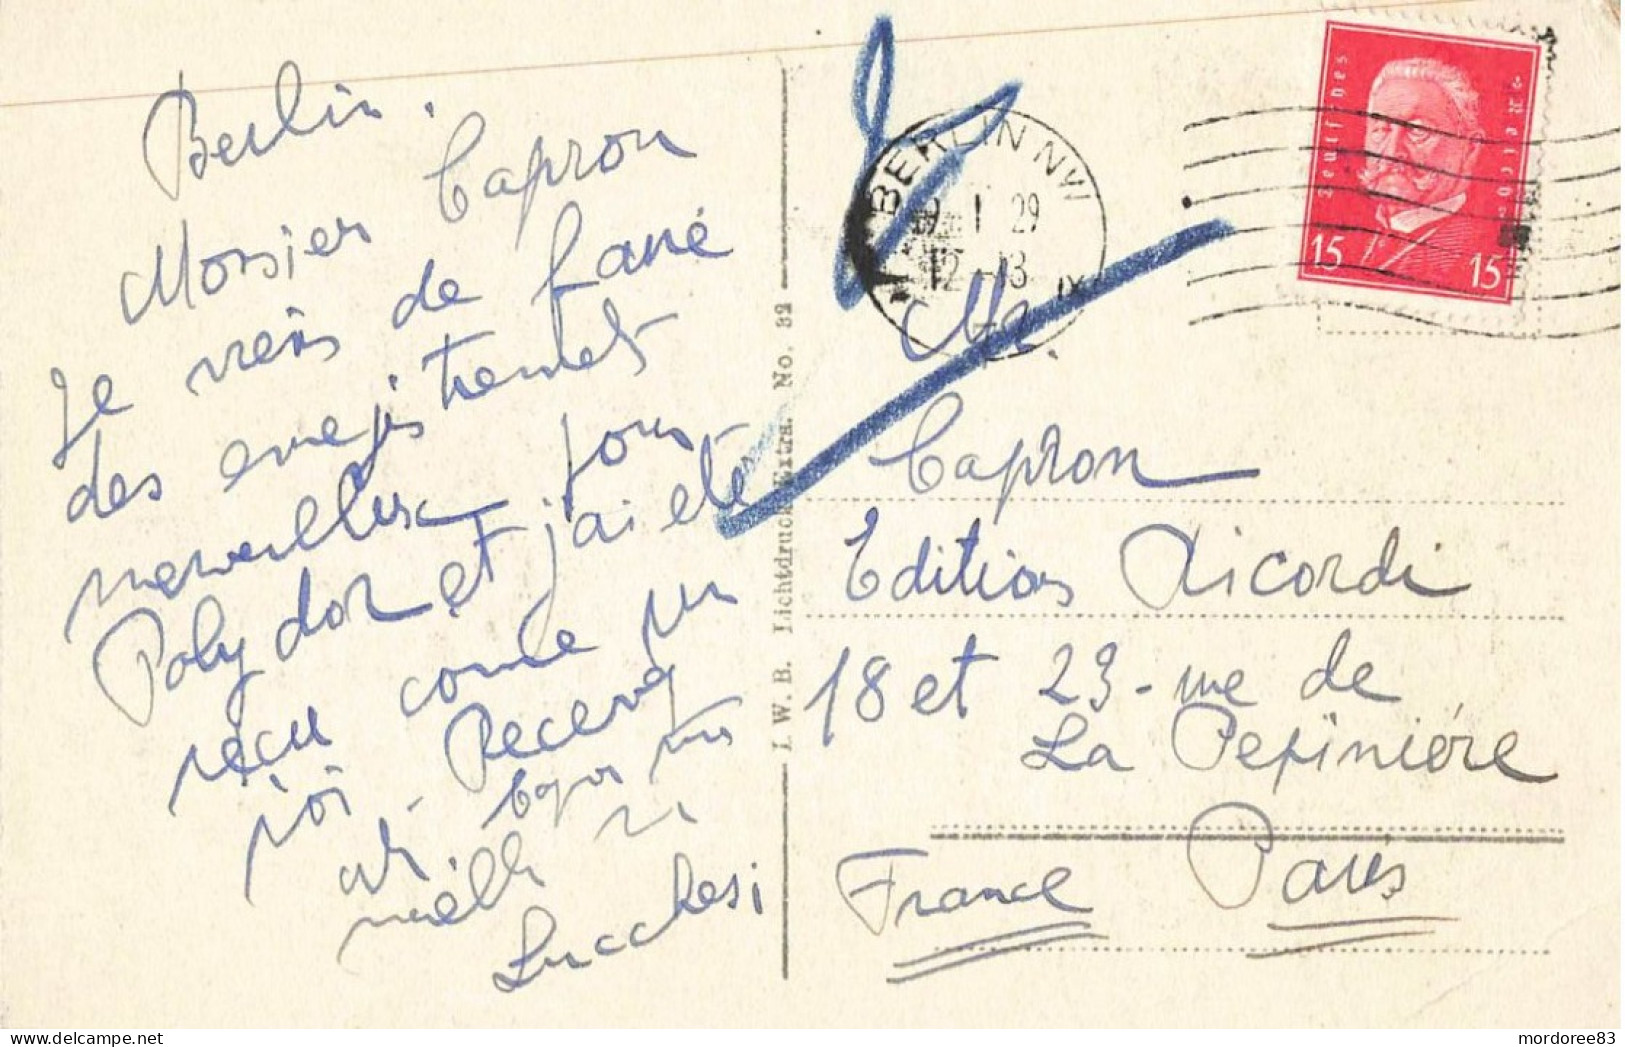 Berlin.
Monsier Capron
Je viens de faire
des enregistrements
merveilleux pour
Polydor et j'ai eté
reçu comme un
roi - Recevez
mille
Lucchesi
I. W. B. Lichtdruck Extra. No. 32
BERLIN NW
9. 1 29
12-13
Deutsches Reich
15 15
Mr.
Capron
Editions Ricordi
18 et 23 - rue de
La Pepinière
Paris
France
mordoree83